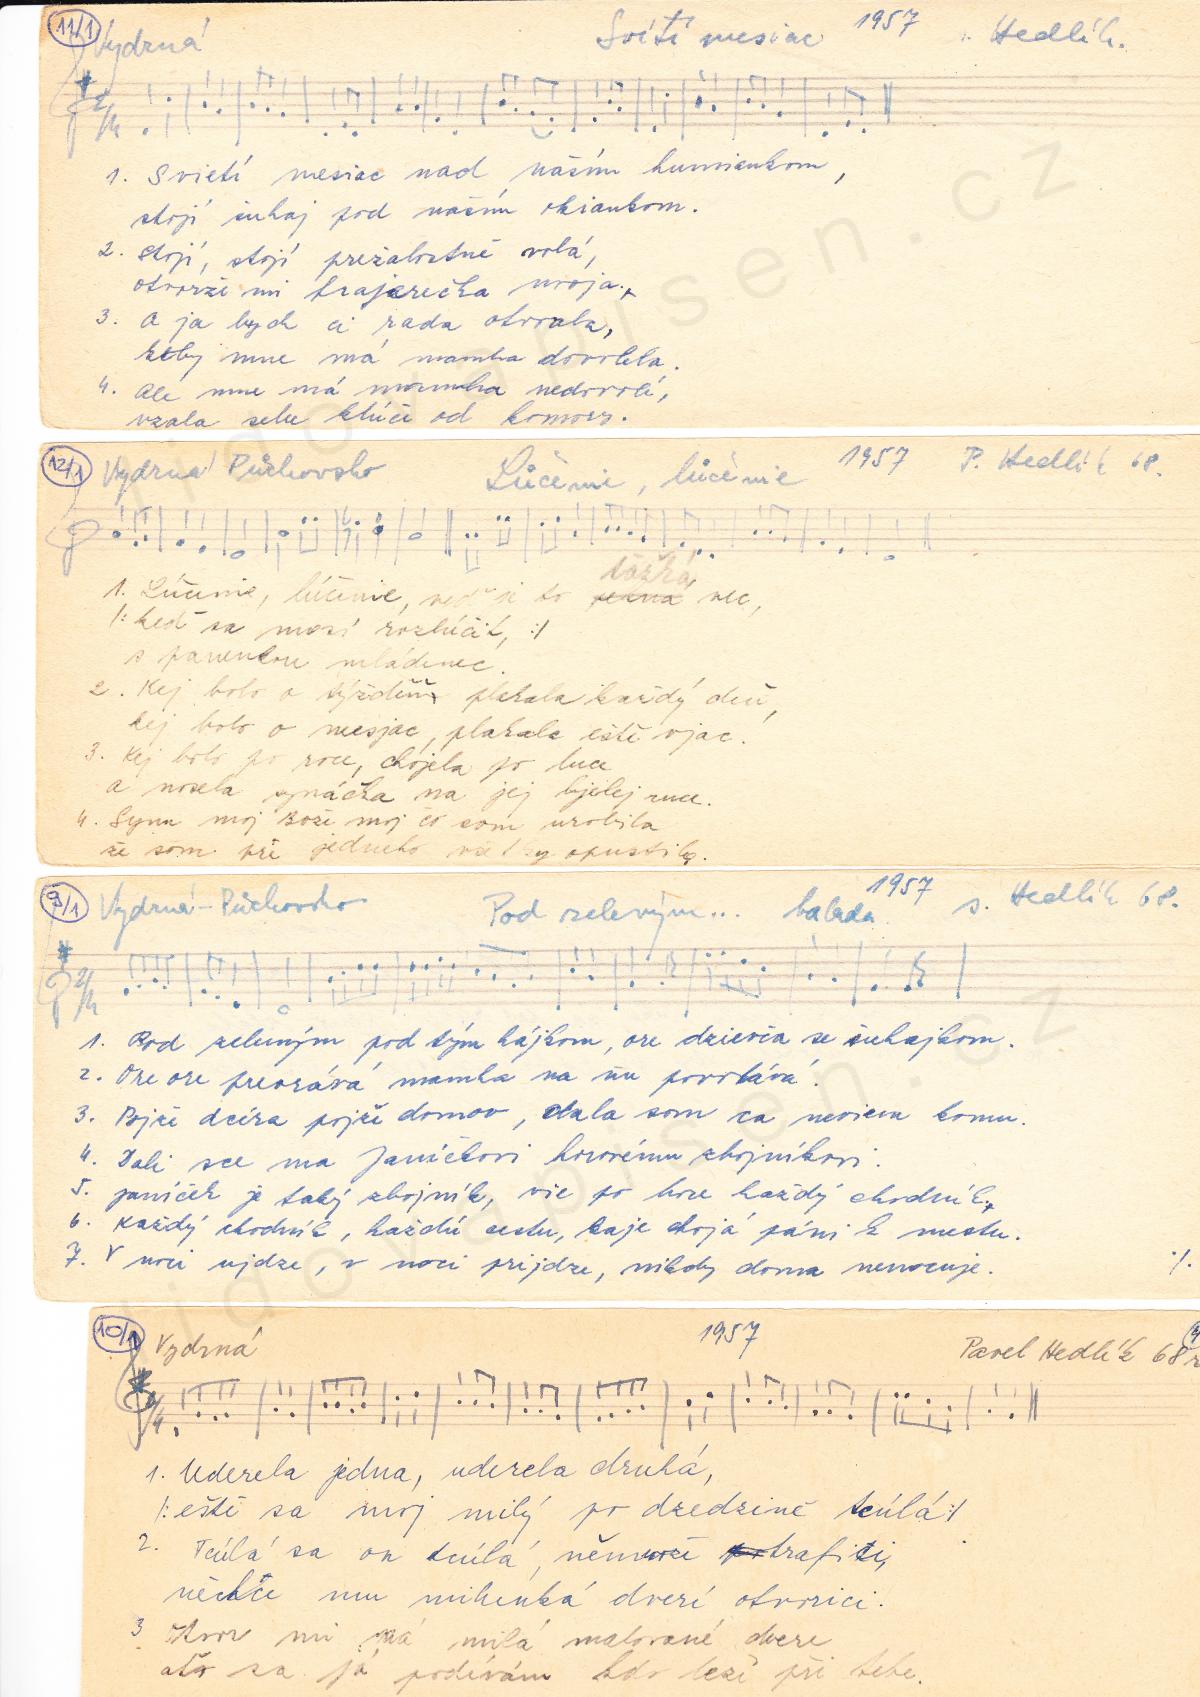 11/1 Vydrná Svítí mesiac 1957 Hedlík.
1. Svietí mesiac nad naším humienkom,
stojí šuhaj pod naším okiankom.
2. Stojí, stojí prežalostně volá,
otvorže mi frajerečka moja.
3. A ja bych ci rada otvorala,
keby mne má mamka dovolela.
4. Ale mne má mamka nedovolí,
vzala sebe klúče od komory.
12/1 Vydrná Púchovsko Lúčenie, lúčenie 1957 P. Hedlík 68.
ťažká
1. Lúčenie, lúčenie, veď je to vec,
/: keď sa mosí rozlúčiť, :/
s panenkou mládenec.
2. Kej bolo o týždeň plakala každý deň,
kej bolo o mesjac, plakala eště vjac.
3. Kej bolo po roce, chojela po luce
a nosela synáčka na jej bjelej ruce.
4. Synu moj Bože moj čo som urobila
že som pre jedneho všetky opustila.
9/1 Vydrná - Púchovsko Pod zeleným... balada 1957 s. Hedlík 68.
1. Pod zeleným pod tým hájkom, ore dzievča se šuhajkom.
2. Ore ore preorává mamka na ňu povolává.
3. Pojže dcéra pojže domov, dala som ca neviem komu.
4. Dali sce ma Janíčkovi horovému zbojníkovi.
5. Janíček je taký zbojník, vie po hore každý chodník,
6. Každý chodník, každú cestu, kaje chojá páni k mestu.
7. V noci ujdze, v noci prijdze, nikdy doma nenocuje.
./.
10/1 Vydrná 1957 Pavel Hedlík 68 r
1. Uderela jedna, uderela druhá,
/: eště sa moj milý po dzedzině túlá :/
2. Túlá sa on túlá, němože trafiti,
něchce mu milenká dveří otvorici.
3 Otvor mi má milá malované dvere
ato sa já podívám kdo leží při tebe.